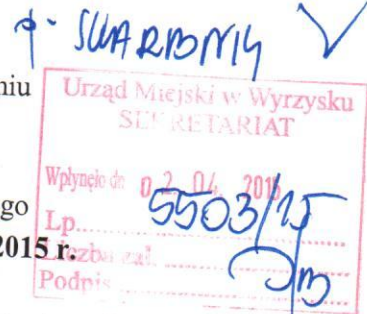 p. SKARBNIK
niu
Urząd Miejski w Wyrzysku
SEKRETARIAT
Wpłynęło dn. 02. 04. 2015
ego
Lp. 5503/15
2015 r.
Liczba zał.
Podpis